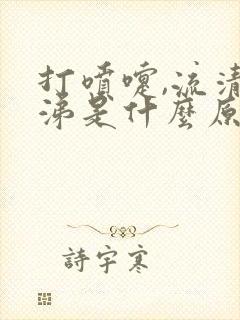 打噴嚏,流清
涕是什麼原
詩宇寒